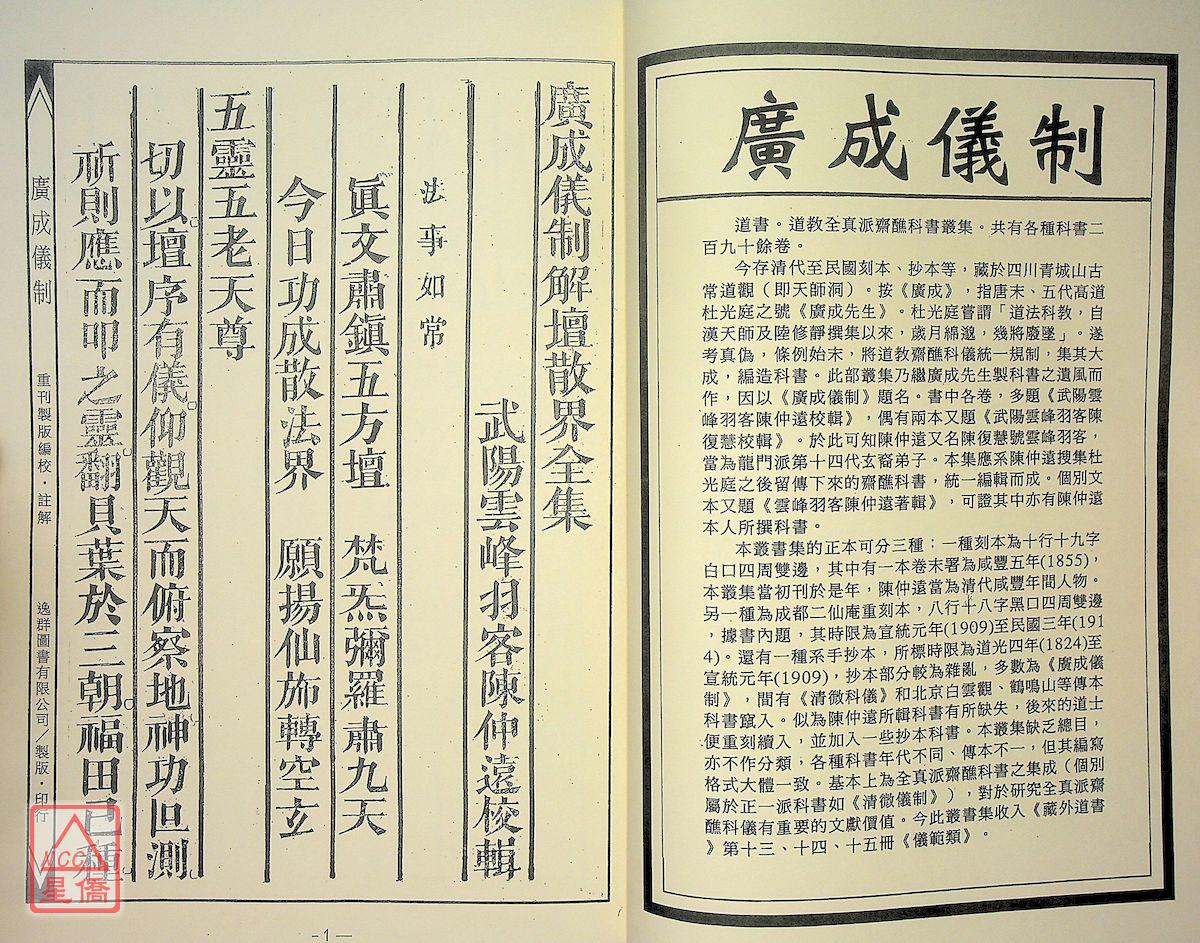 廣成儀制
道書。道教全真派齋醮科書叢集。共有各種科書二
百九十餘卷。
今存清代至民國刻本、抄本等，藏於四川青城山古
常道觀（即天師洞）。按《廣成》，指唐末、五代高道
杜光庭之號《廣成先生》。杜光庭嘗謂「道法科教，自
漢天師及陸修靜撰集以來，歲月綿邈，幾將廢墜」。遂
考真偽，條例始末，將道教齋醮科儀統一規制，集其大
成，編造科書。此部叢集乃繼廣成先生製科書之遺風而
作，因以《廣成儀制》題名。書中各卷，多題《武陽雲
峰羽客陳仲遠校輯》，偶有兩本又題《武陽雲峰羽客陳
復慧校輯》。於此可知陳仲遠又名陳復慧號雲峰羽客，
當為龍門派第十四代玄裔弟子。本集應系陳仲遠搜集杜
光庭之後留傳下來的齋醮科書，統一編輯而成。個別文
本又題《雲峰羽客陳仲遠著輯》，可證其中亦有陳仲遠
本人所撰科書。
本叢書集的正本可分三種；一種刻本為十行十九字
白口四周雙邊，其中有一本卷末署為咸豐五年(1855)，
本叢集當初刊於是年，陳仲遠當為清代咸豐年間人物。
另一種為成都二仙庵重刻本，八行十八字黑口四周雙邊
，據書內題，其時限為宣統元年(1909)至民國三年(191
4)。還有一種系手抄本，所標時限為道光四年(1824)至
宣統元年(1909)，抄本部分較為雜亂，多數為《廣成儀
制》，間有《清微科儀》和北京白雲觀、鶴鳴山等傳本
科書竄入。似為陳仲遠所輯科書有所缺失，後來的道士
便重刻續入，並加入一些抄本科書。本叢集缺乏總目，
亦不作分類，各種科書年代不同、傳本不一，但其編寫
格式大體一致。基本上為全真派齋醮科書之集成（個別
屬於正一派科書如《清微儀制》），對於研究全真派齋
醮科儀有重要的文獻價值。今此叢書集收入《藏外道書
》第十三、十四、十五冊《儀範類》。
廣成儀制解壇散界全集
武陽雲峰羽客陳仲遠校輯
法事如常
眞文肅鎮五方壇　梵炁彌羅肅九天
今日功成散法界　願揚仙斾轉空玄
五靈五老天尊
切以壇序有儀仰觀天而俯察地神功叵測
祈則應而叩之靈翻貝葉於三朝福田已種
廣成儀制
重刊製版編校・註解
逸群圖書有限公司／製版・印行
-1-
星僑